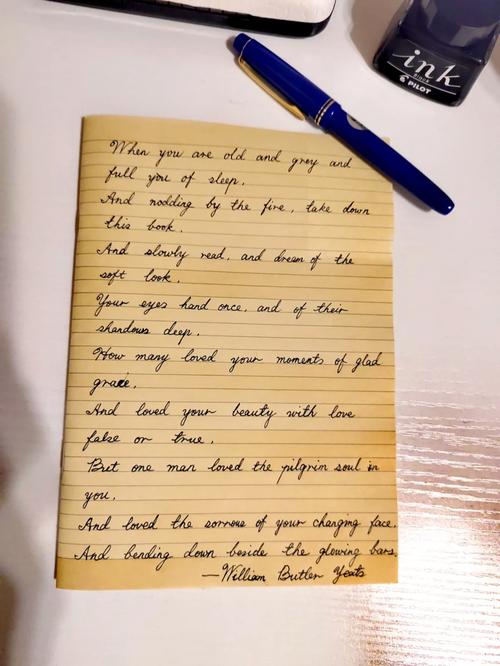 ink
BLACK
PILOT
When you are old and grey and
full you of sleep,
And nodding by the fire, take down
this book.
And slowly read, and dream of the
soft look,
Your eyes hand once, and of their
shandows deep,
How many loved your moments of glad
grace,
And loved your beauty with love
false or true,
But one man loved the pilgrim soul in
you,
And loved the sorrows of your changing face.
And bending down beside the glowing bars,
—William Butler Yeats